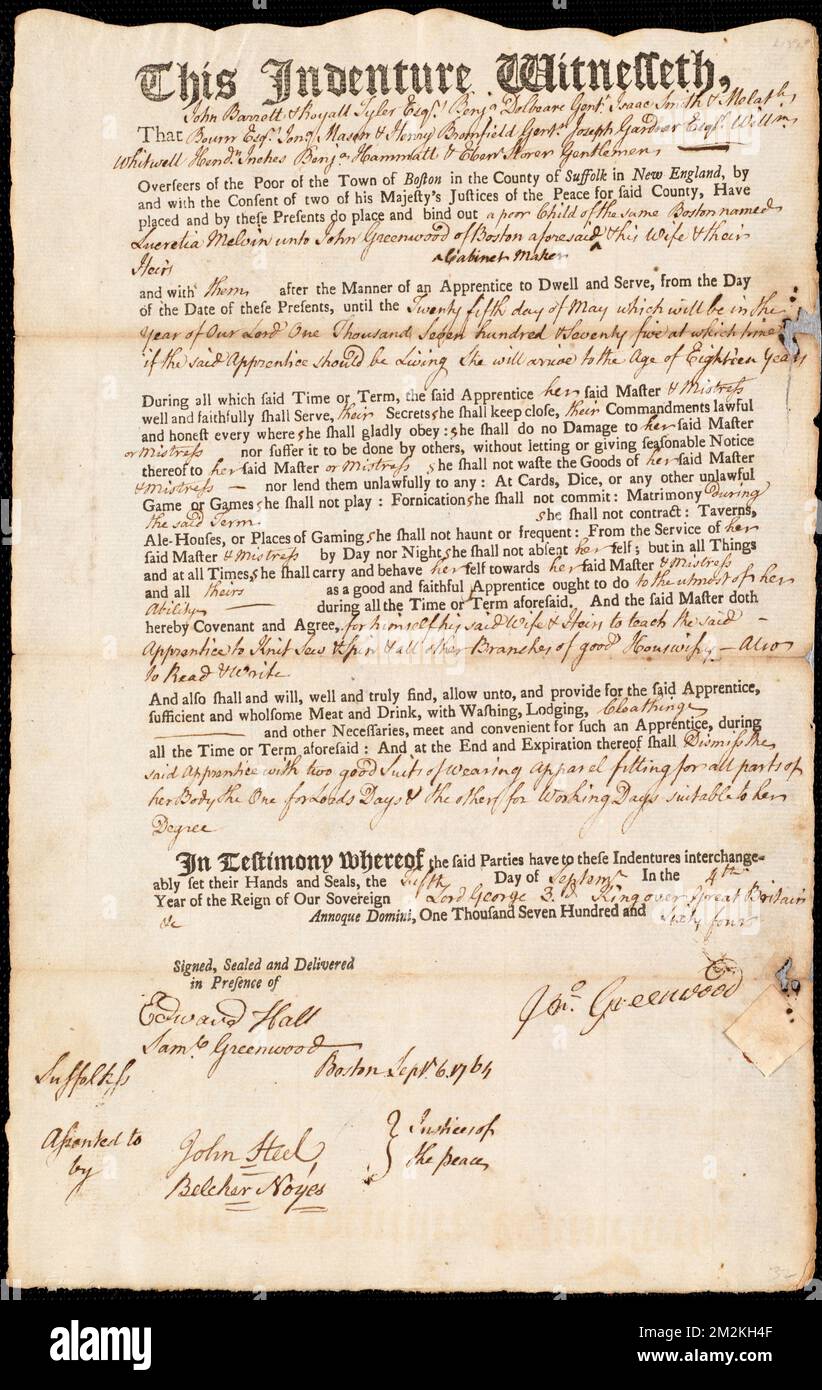 This Indenture Witnesseth,
John Barrett & Royall Tyler Esqrs. Benja. Dolbeare Gent. Isaac Smith & Melath.
That Bourn Esqr. Jonª. Mason & Henry Bromfield Gents. Joseph Gardner Esqr. Willm.
Whitwell Hendn. Inches Benja. Hammatt & Ebenr. Storer Gentlemen
Overseers of the Poor of the Town of Boston in the County of Suffolk in New England, by
and with the Consent of two of his Majesty's Justices of the Peace for said County, Have
placed and by these Presents do place and bind out a poor Child of the same Boston named
Lucretia Melvin unto John Greenwood of Boston aforesaid ^ & his Wife & their
Heirs ^ Cabinet Maker
and with them after the Manner of an Apprentice to Dwell and Serve, from the Day
of the Date of these Presents, until the Twenty fifth day of May which will be in the
Year of Our Lord One Thousand Seven hundred & Seventy five at which time
if the said Apprentice should be Living She will arive to the Age of Eighteen Years
During all which said Time or Term, the said Apprentice her said Master & Mistress
well and faithfully shall Serve, their Secrets she shall keep close, their Commandments lawful
and honest every where she shall gladly obey: she shall do no Damage to her said Master
or Mistress nor suffer it to be done by others, without letting or giving seasonable Notice
thereof to her said Master or Mistress she shall not waste the Goods of her said Master
& Mistress — nor lend them unlawfully to any: At Cards, Dice, or any other unlawful
Game or Games she shall not play: Fornication she shall not commit: Matrimony During
the said Term she shall not contract: Taverns,
Ale-Houses, or Places of Gaming she shall not haunt or frequent: From the Service of her
said Master & Mistress by Day nor Night she shall not absent her self; but in all Things
and at all Times, she shall carry and behave her self towards her said Master & Mistress
and all theirs as a good and faithful Apprentice ought to do to the utmost of her
Ability — during all the Time or Term aforesaid. And the said Master doth
hereby Covenant and Agree, for himself his said Wife & Heirs to teach the said —
Apprentice to Knit Sew & Spin & all other Branches of good Houswifry — Also
to Read & Write
And also shall and will, well and truly find, allow unto, and provide for the said Apprentice,
sufficient and wholsome Meat and Drink, with Washing, Lodging, Cloathing
— and other Necessaries, meet and convenient for such an Apprentice, during
all the Time or Term aforesaid: And at the End and Expiration thereof shall Dismiss the
said Apprentice with two good Suits of Wearing Apparel fitting for all parts of
her Body the One for Lords Days & the other for Working Days suitable to her
Degree
In Testimony whereof, the said Parties have to these Indentures interchange-
ably set their Hands and Seals, the Fifth Day of Septemr. In the 4th
Year of the Reign of Our Sovereign Lord George 3.d King over Great Britain
&c Annoque Domini, One Thousand Seven Hundred and Sixty four
Signed, Sealed and Delivered
in Presence of
Jno. Greenwood
Edward Hall
Saml. Greenwood
Suffolk ss Boston Sepr. 6. 1764
Assented to
by
John Steel
Belcher Noyes
} Justices of
the peace
alamy
Image ID: 2M2KH4F
www.alamy.com